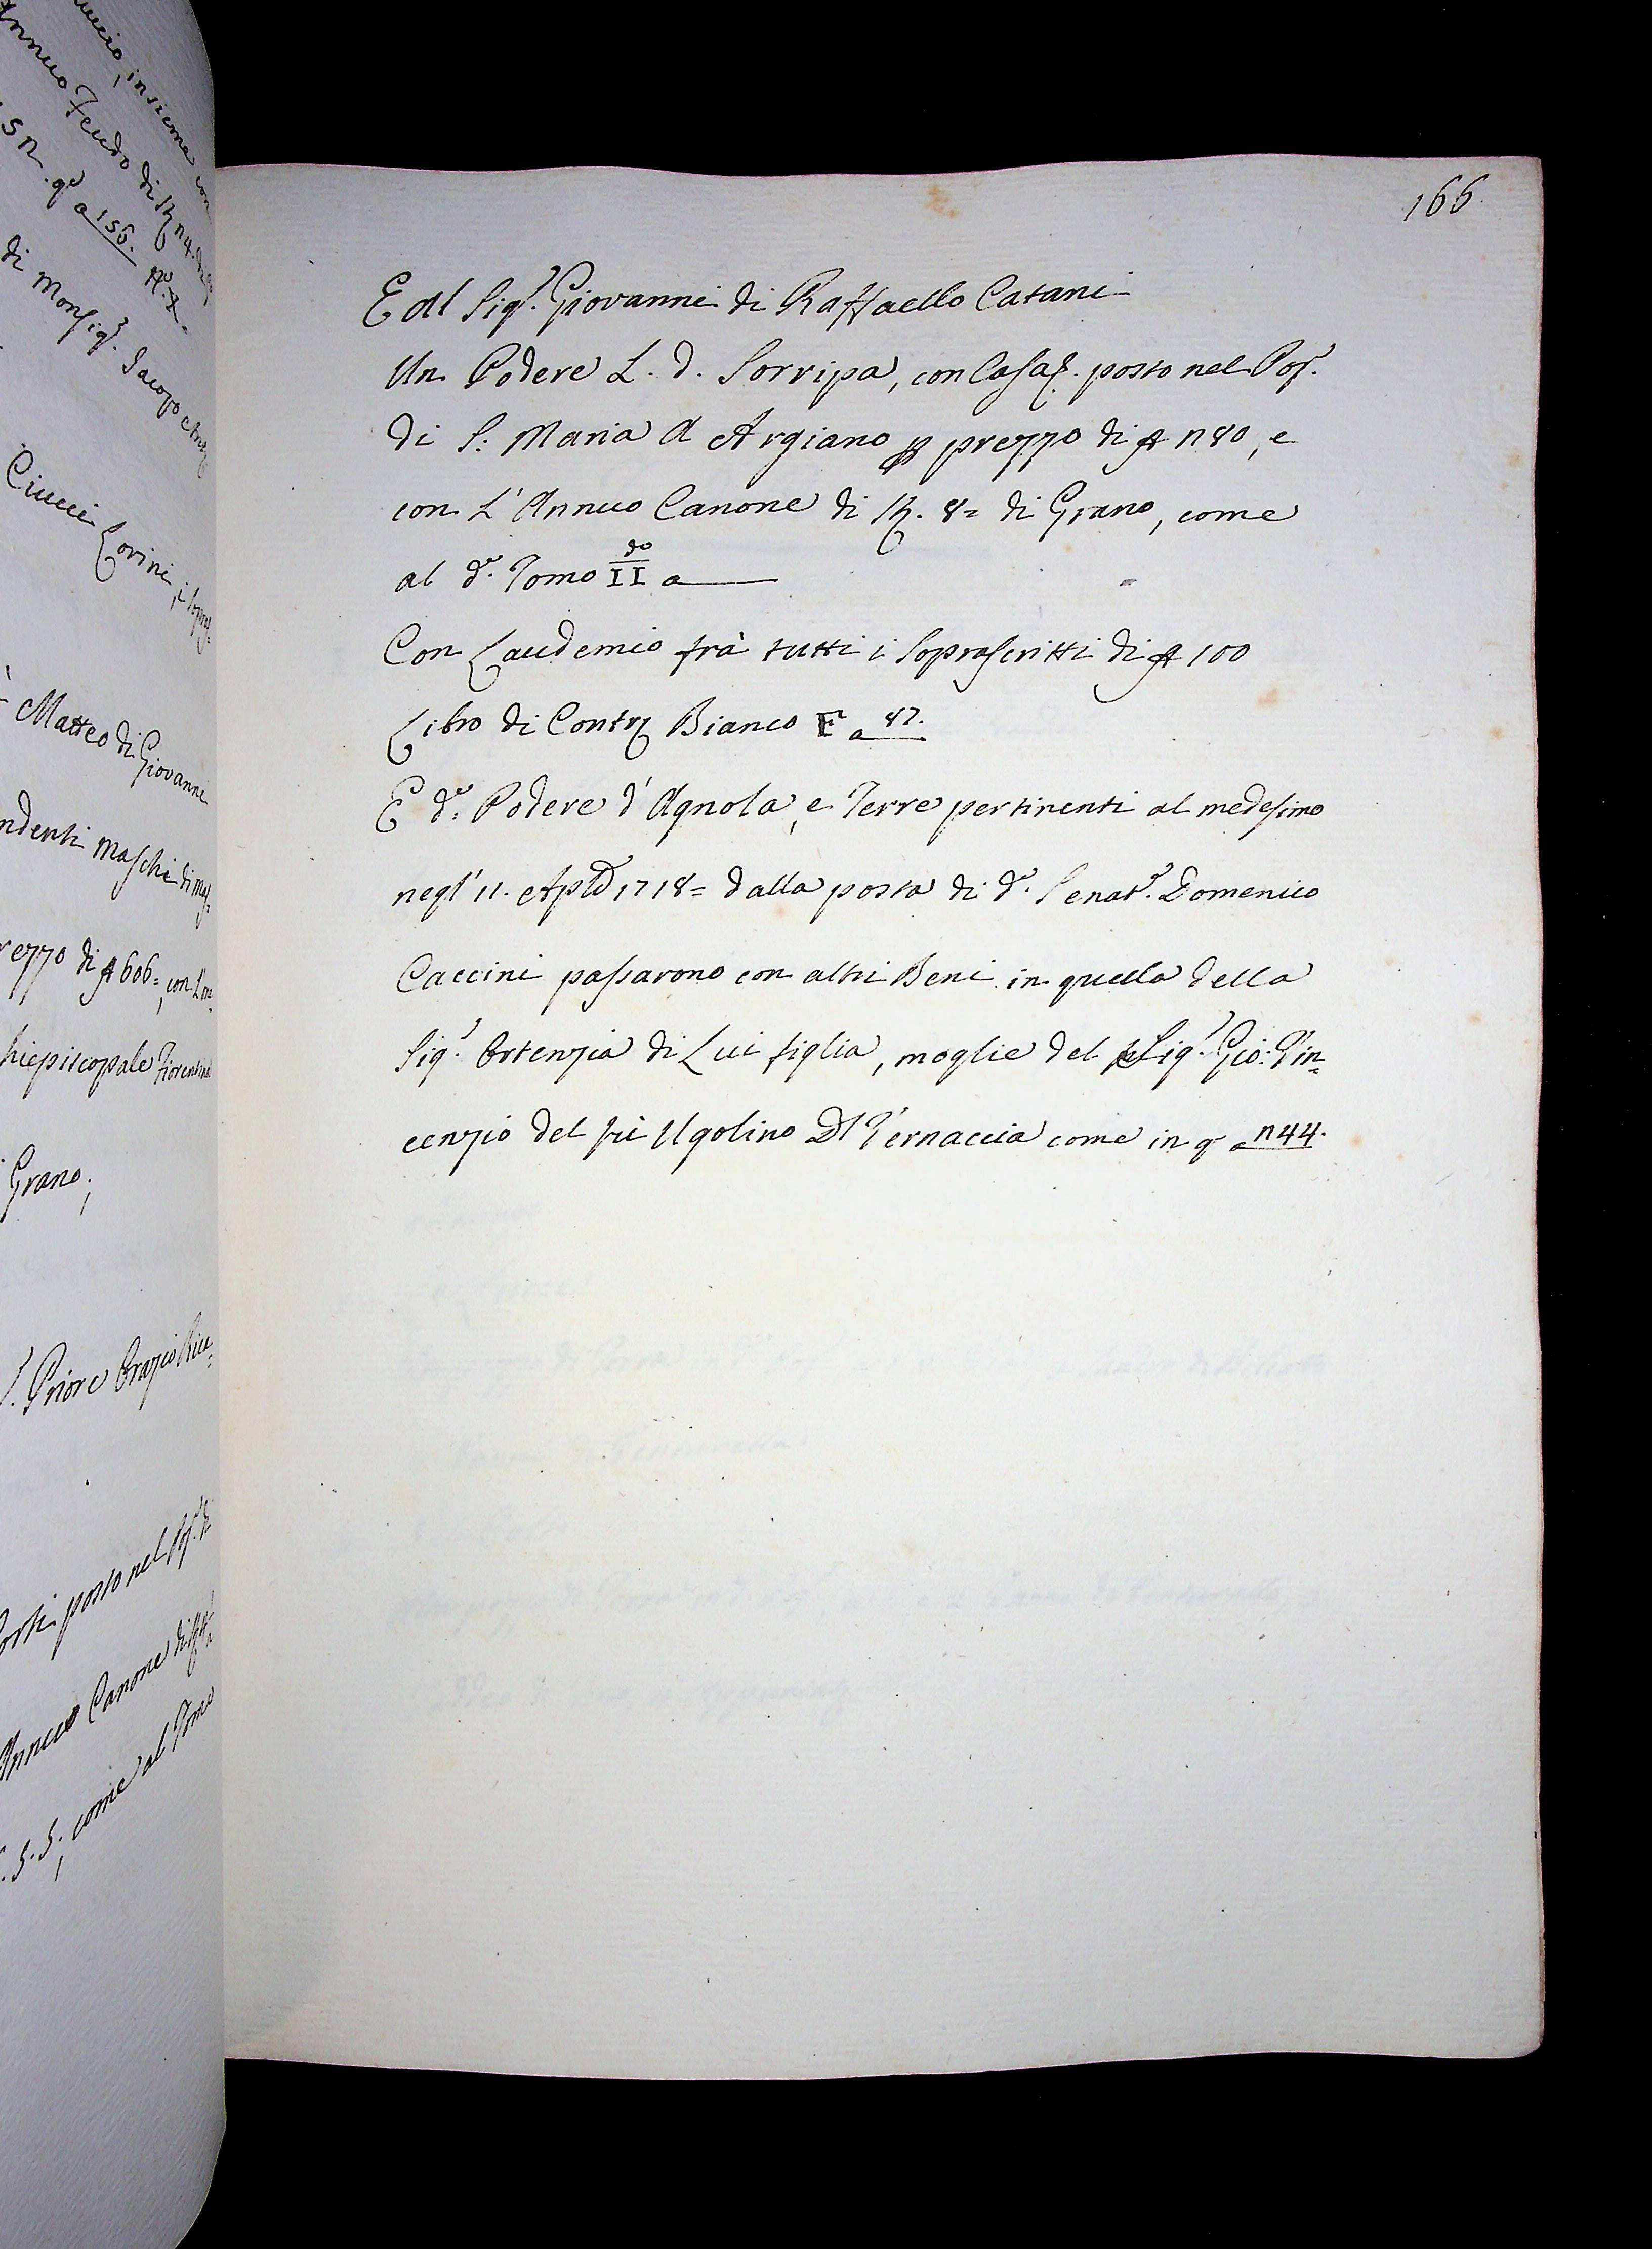 166
E al Sig.r Giovanni di Raffaello Catani
Un Podere L. d. Sorripa, con Casa &. posto nel Pop.
di S: Maria a Argiano p prezzo di 180, e
con L'Annuo Canone di 8= di Grano, come
al d.o Tomo II do a
Con Laudemio frà tutti i Soprascritti di 100
Libro di Contr Bianco F a 87.
E d.o Podere d'Agnola, e Terre pertinenti al medesimo
negl'11. Aple 1718= dalla posta di d.o Senat.r Domenico
Caccini passarono con altri Beni in quella della
Sig.r Ortenzia di Lui figlia, moglie del Sig.r Gio: Vin=
cenzio del fù Ugolino Vernaccia come in q a 144.
uccio, insieme con
Annuo Feudo di
q.o a 156.
di Monsig.r Jacopo
Ciucci Lorini,
Matteo di Giovanni
ndenti maschi di
rezzo di 606=, con
hiepiscopale Fiorentina
Grano;
Priore Orazio
posto nel
Annuo Canone di
come al Tomo